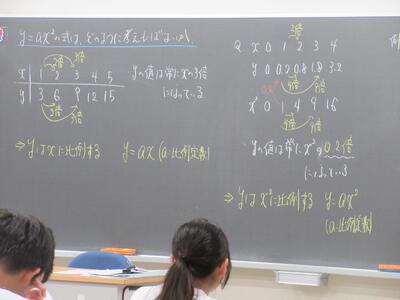 y=ax²の式は、どのように考えればよいか
2倍 3倍
x 1 2 3 4 5
y 3 6 9 12 15
2倍 3倍
・yの値は常にxの3倍
になっている
⇒ yはxに比例する y=ax (a:比例定数)
2倍
Q x 0 1 2 3 4
y 0 0.2 0.8 1.8 3.2
4倍 9倍
x² 0 1 4 9 16
4倍 9倍
・yの値は常にx²の0.2倍
になっている
⇒ yはx²に比例する y=ax²
(a:比例定数)